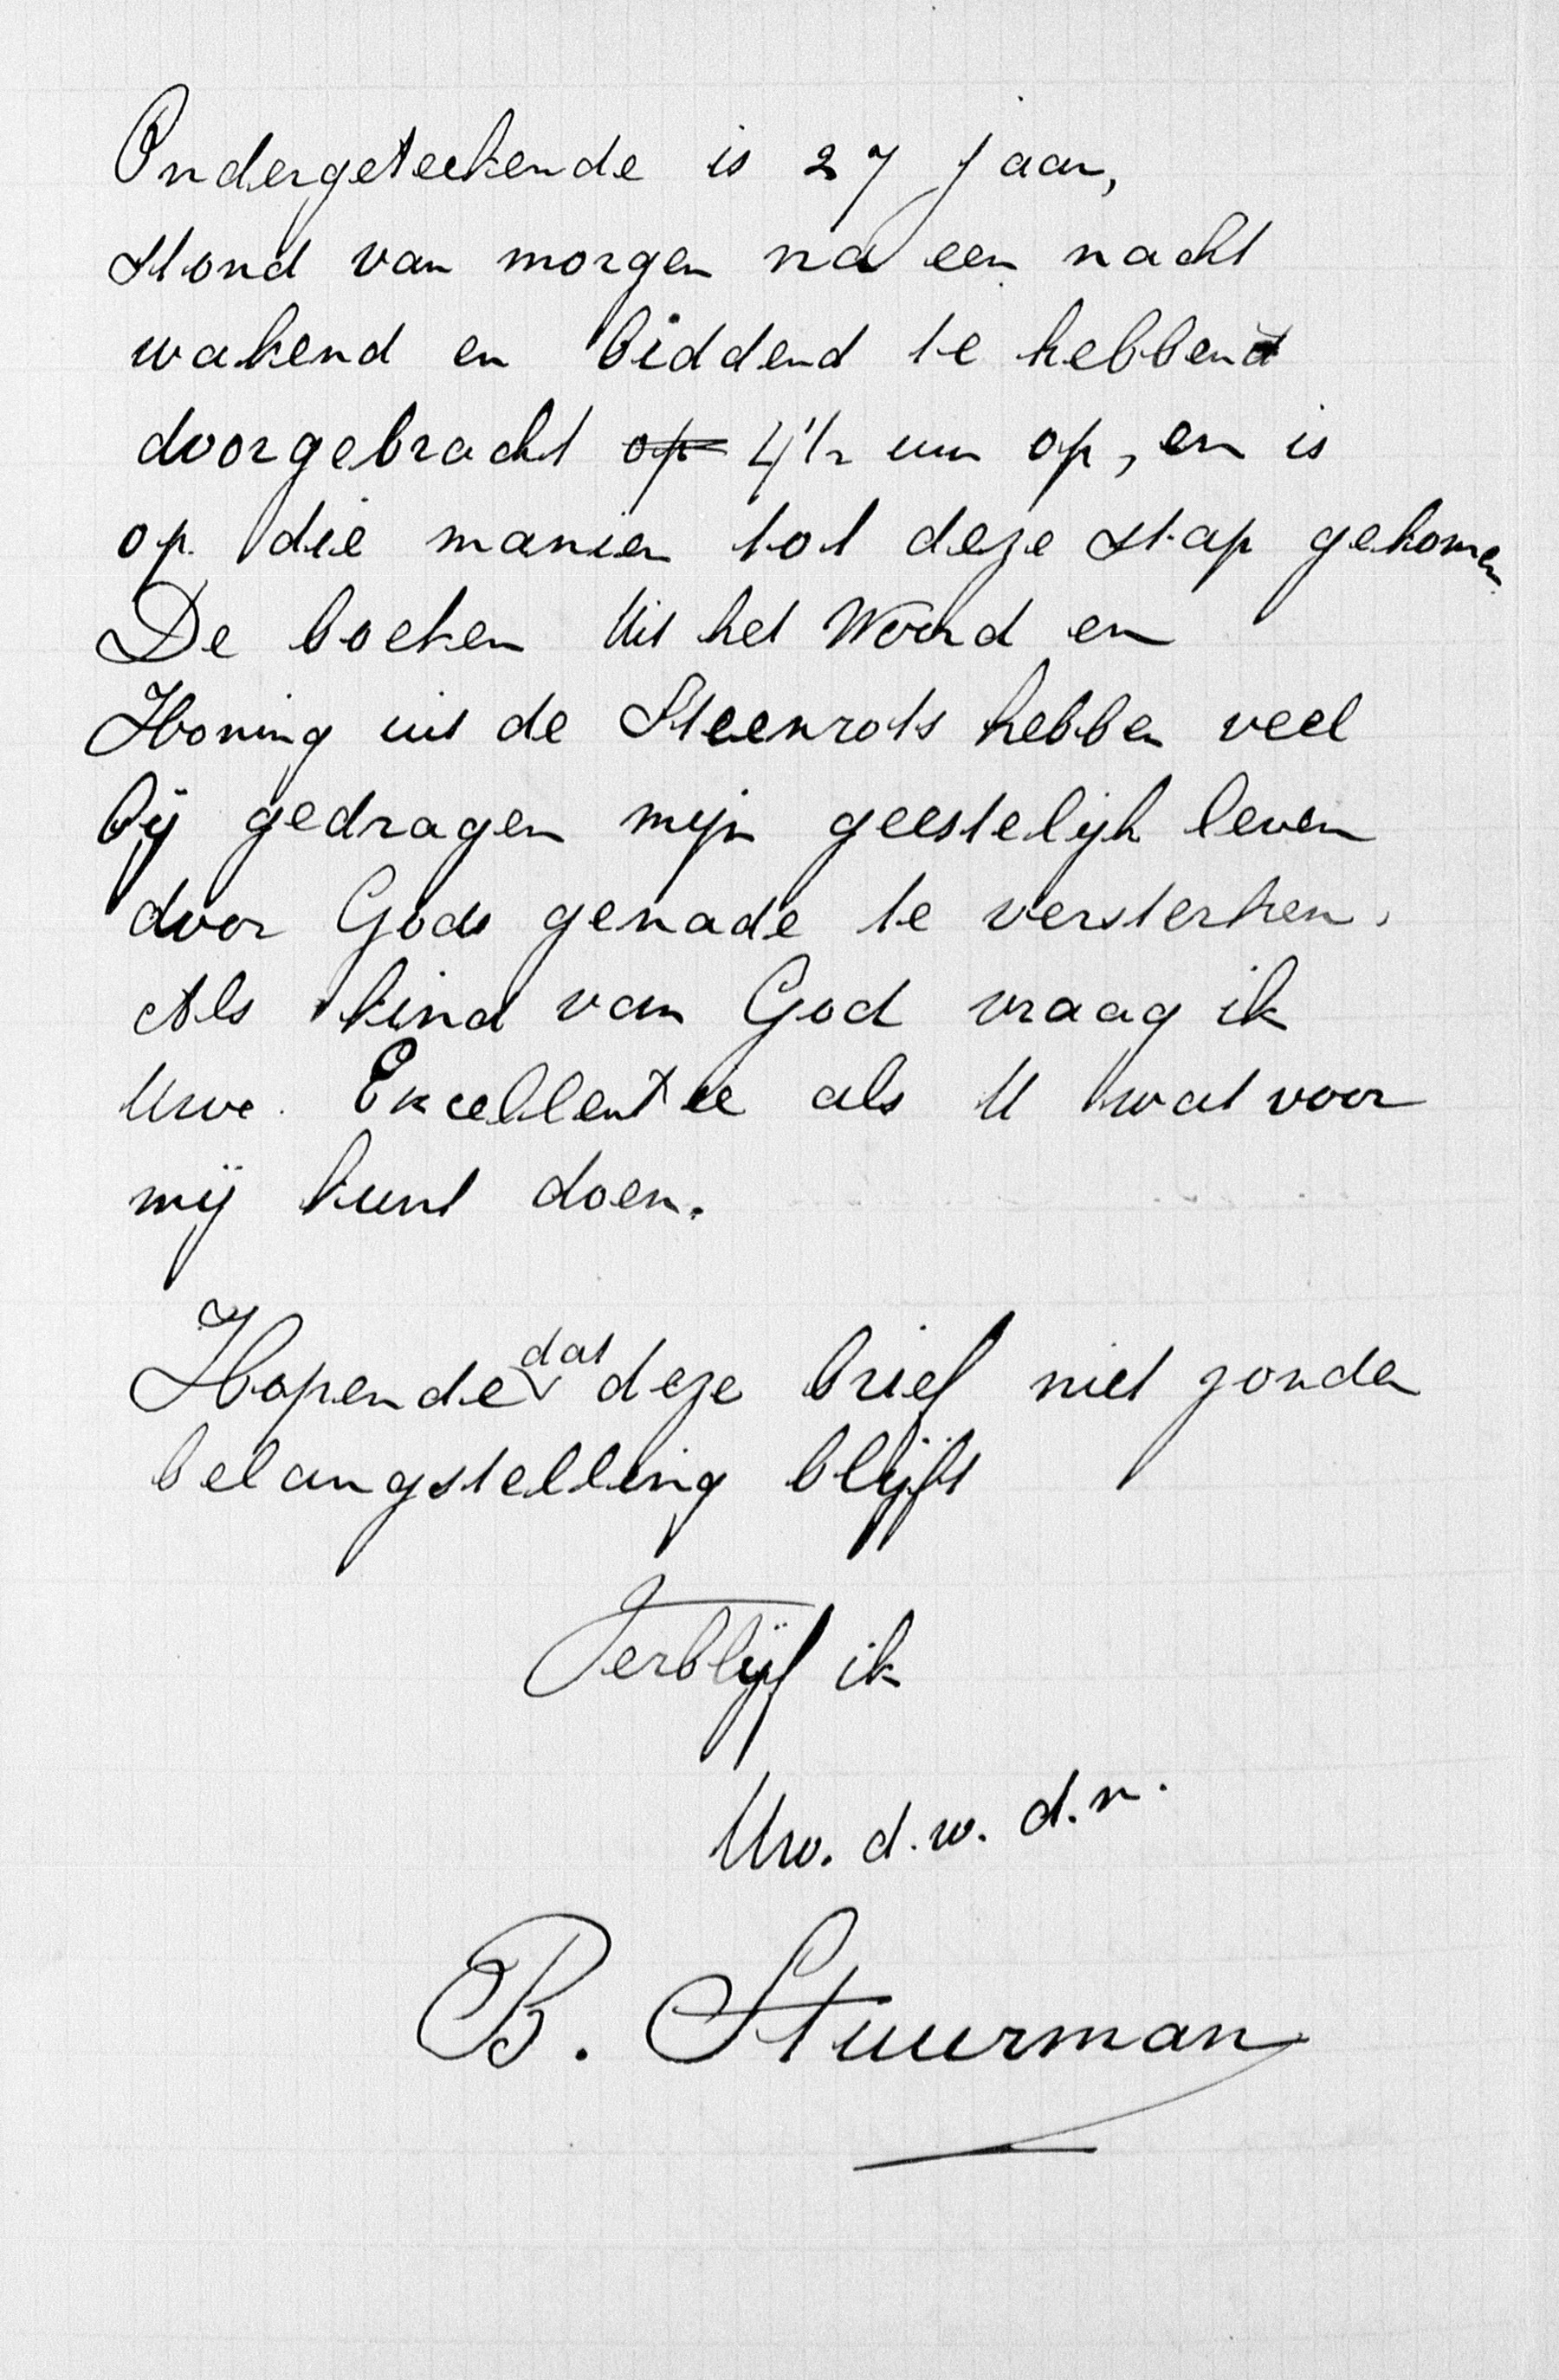 Ondergeteekende is 27 jaar,
stond van morgen na een nacht
wakend en biddend te hebben
doorgebracht op 4½ uur op, en is
op die manier tot deze stap gekomen
De boeken Uit het Woord en
Honing uit de Steenrots hebben veel
bij gedragen mijn geestelijk leven
door Gods genade te versterken.
Als kind van God vraag ik
Uwe Excellentie als U wat voor
mij kunt doen.
Hopende dat deze brief niet zonder
belangstelling blijft
Verblijf ik
Uw. d. w. d.n.
B. Stuurman